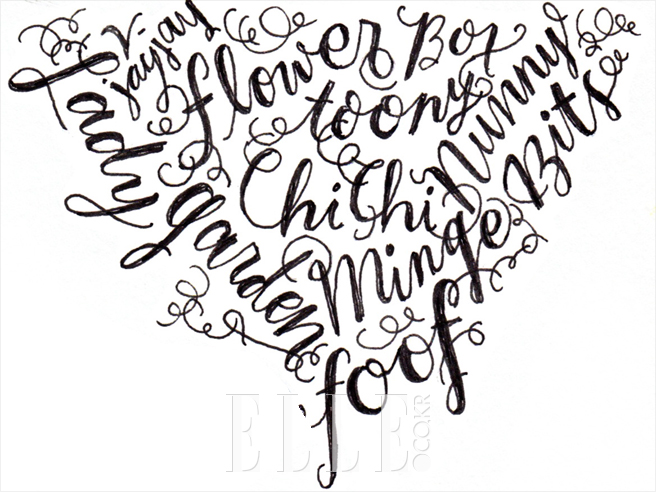 V
jayjay
flower
Box
Lady
garden
toony
Nunny
Bits
Chi Chi
Minge
foof
ELLE.CO.KR